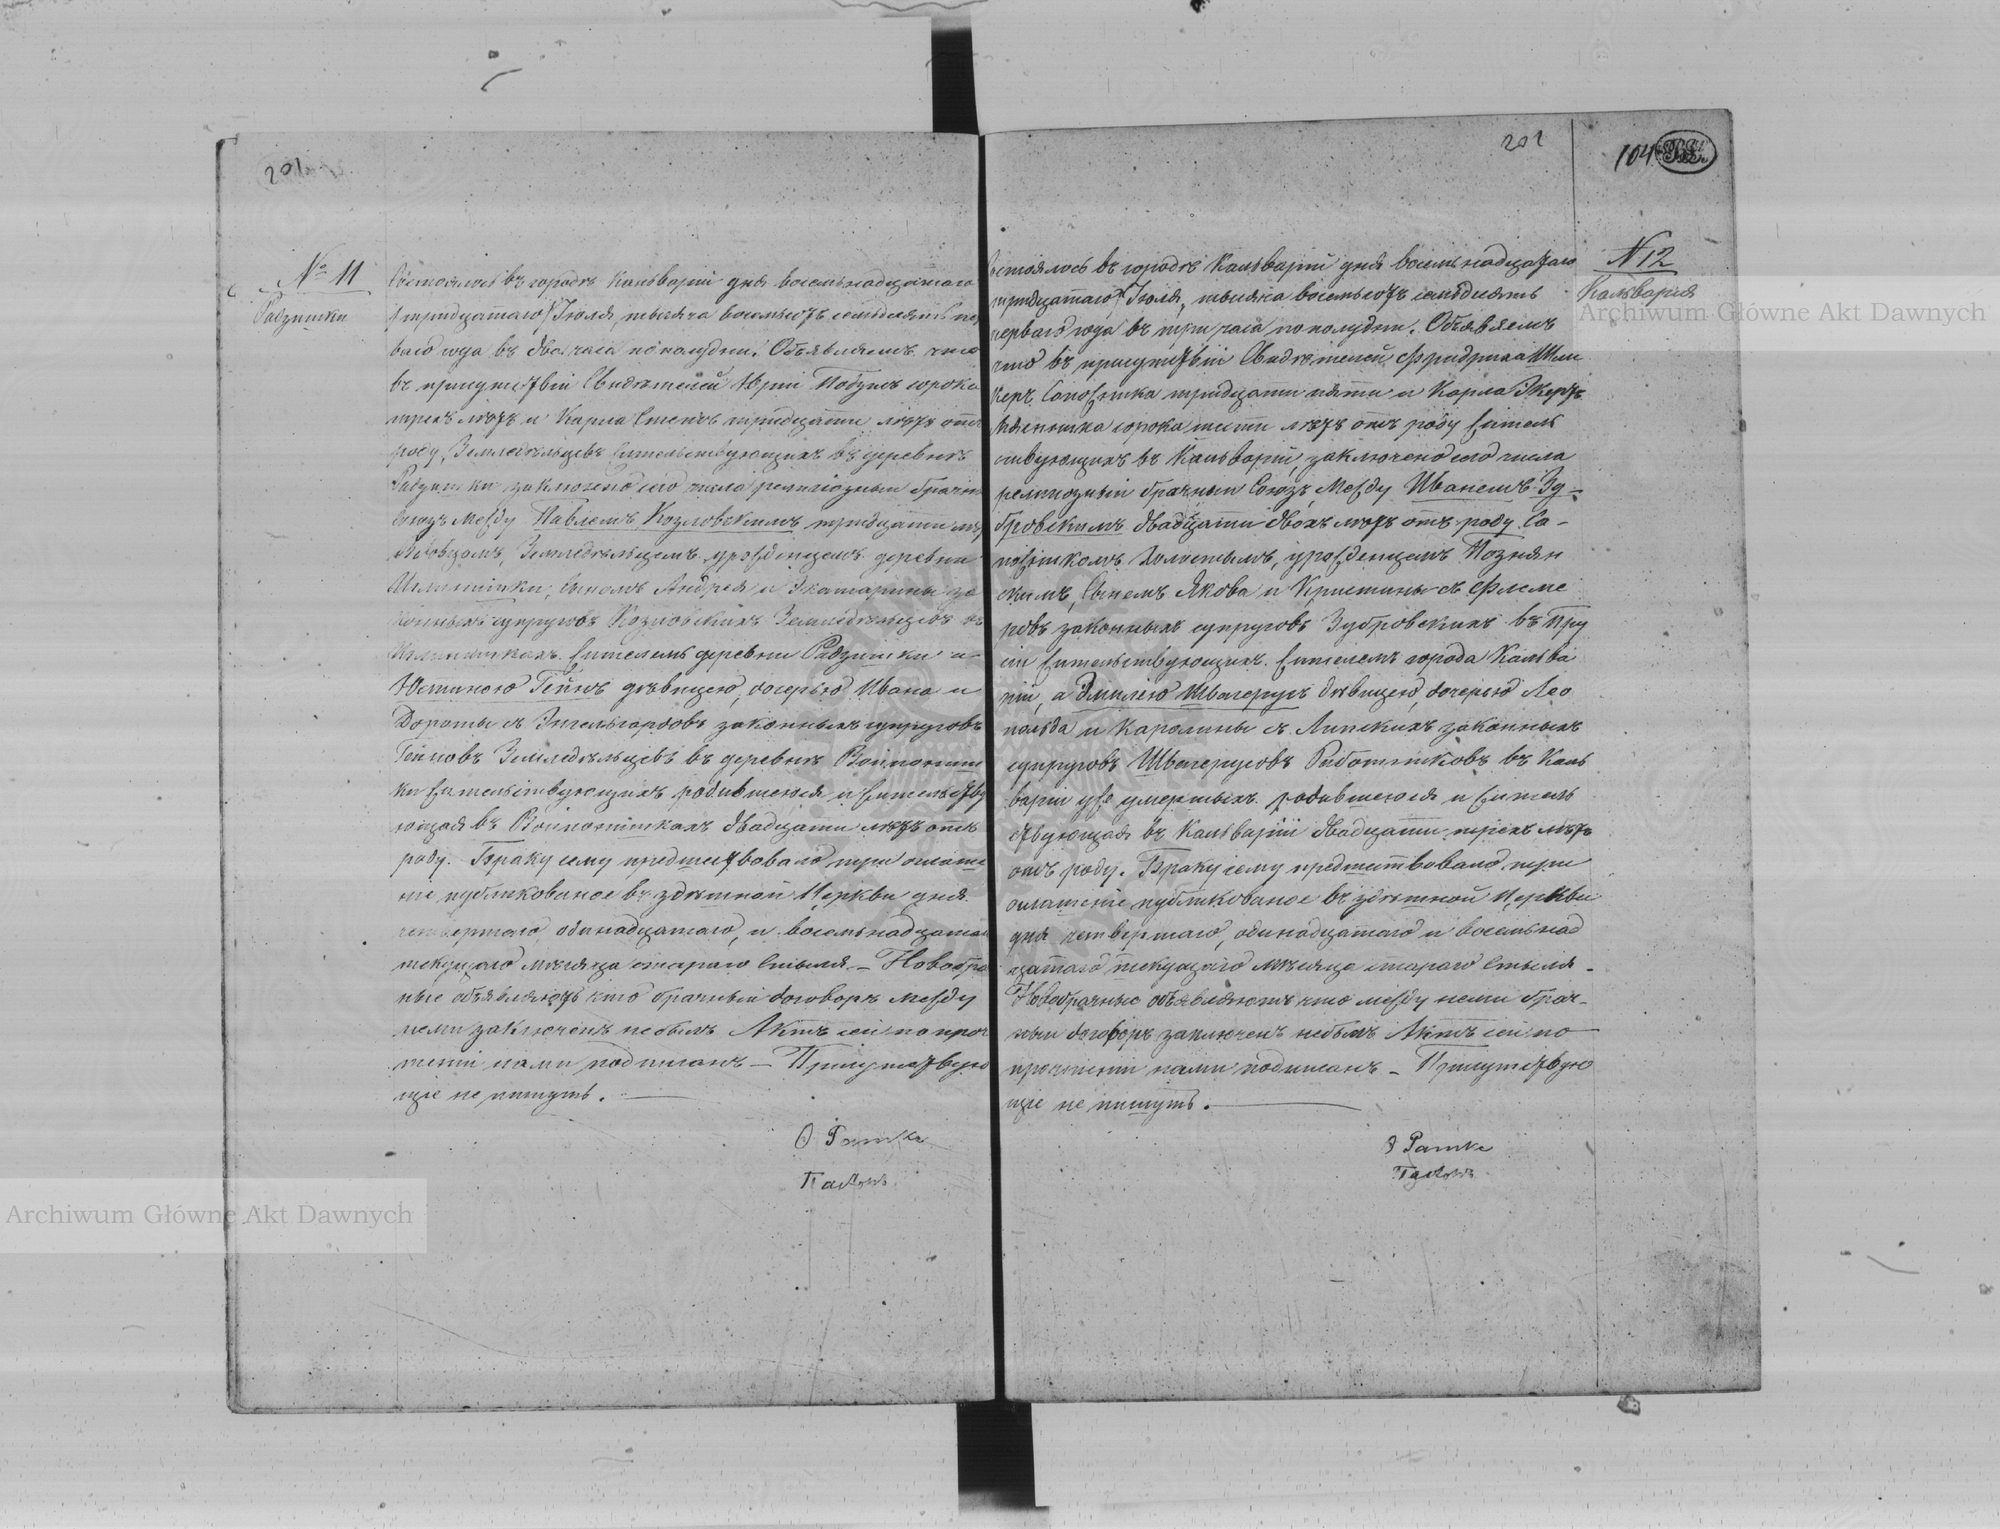 201
№ 11
Радзишки
Состоялось въ городѣ Кальваріи дня восемьнадцатаго
/тридцатаго/ Іюля, тысяча восемьсотъ семьдесятъ пер
ваго года въ два часа по полудни. Объявляемъ что
въ присутствіи Свидѣтелей Юрія сорока
трехъ лѣтъ и Карла тридцати лѣтъ отъ
роду, Земледѣльцевъ жительствующихъ въ деревнѣ
Радзишки заключенъ сего числа религіозный брачный
Союзъ между Павлемъ Козловскимъ тридцати лѣтъ
Вдовцомъ, Земледѣльцемъ урожденцемъ деревни
сыномъ Андрея и Экатарины за
конныхъ супруговъ Козловскихъ Земледѣльцевъ въ
жителемъ деревни Радзишки и
Юстиною Гейнъ дѣвицею, дочерью Ивана и
Дороты съ законныхъ супруговъ
Гейновъ Земледѣльцевъ въ деревнѣ
ки жительствующихъ родившеюся и жительству
ющая въ двадцати лѣтъ отъ
роду. Браку сему предшествовало три оглаше
ніе публикованое въ здѣшной Церкви дня
четвертаго, одинадцатаго, и восемьнадцатаго
текущаго мѣсяца стараго Стыля. – Новобра
чные объявляютъ что брачный договоръ между
ними заключенъ небылъ Актъ сей по проч
теніи нами подписанъ – Присутствую
щіе не пишутъ.
О Рашке
Пасторъ
202
104
N 12
Кальварія
Состоялось въ городѣ Кальваріи дня восемьнадцатаго
/тридцатаго/ Іюля, тысяча восемьсотъ семьдесятъ
перваго года въ три часа по полудни. Объявляемъ
что въ присутствіи Свидѣтелей Фридриха Шли
керъ Сапожника тридцати пяти и Карла
Мясника сорока шести лѣтъ отъ роду жительст
ствующихъ въ Кальваріи, заключено сего числа
религіозный брачный Союзъ между Иваномъ Зу–
бровскимъ двадцати двохъ лѣтъ отъ роду, Са–
пожникомъ Холостымъ, урожденцемъ Познян
скимъ, Сыномъ Якова и Кристины съ Флеме
ровъ законныхъ супруговъ Зубровскихъ въ Пру
сіи жительствующихъ. жителемъ города Кальва
ріи, а Эмилею Швагерусъ дѣвицею, дочерью Лео
польда и Каролины съ Липскихъ законныхъ
супруговъ Швагерусовъ Работниковъ въ Каль
варіи уже умерлыхъ. родившеюся и житель
ствующая въ Кальваріи двадцати трехъ лѣтъ
отъ роду. Браку сему предшествовало три
оглашеніе публикованое въ здѣшной Церкви
дня четвертаго, одинадцатаго и восемьнад
цатаго текущаго мѣсяца стараго Стыля –
Новобрачные объявляютъ что между ними брач–
ный договоръ заключенъ небылъ Актъ сей по
прочтеніи нами подписанъ – Присутствую
щіе не пишутъ.
О Рашке
Пасторъ
Archiwum Główne Akt Dawnych
Archiwum Główne Akt Dawnych